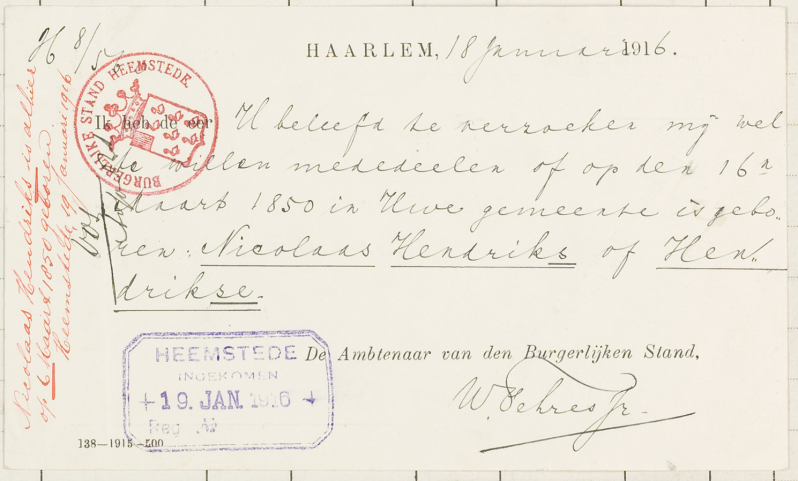 HAARLEM, 18 Januari 1916.
Ik heb de eer U beleefd te verzoeken mij wel
te willen mededeelen of op den 16n
Maart 1850 in Uwe gemeente is gebo-
ren: Nicolaas Hendriks of Hen-
drikse.
De Ambtenaar van den Burgerlijken Stand,
BURGERLIJKE STAND HEEMSTEDE.
Nicolaas Hendriks is alhier
op 6 Maart 1850 geboren
Heemstede 19 Januari 1916
HEEMSTEDE
INGEKOMEN
19. JAN. 1916
Reg
138—1915—500